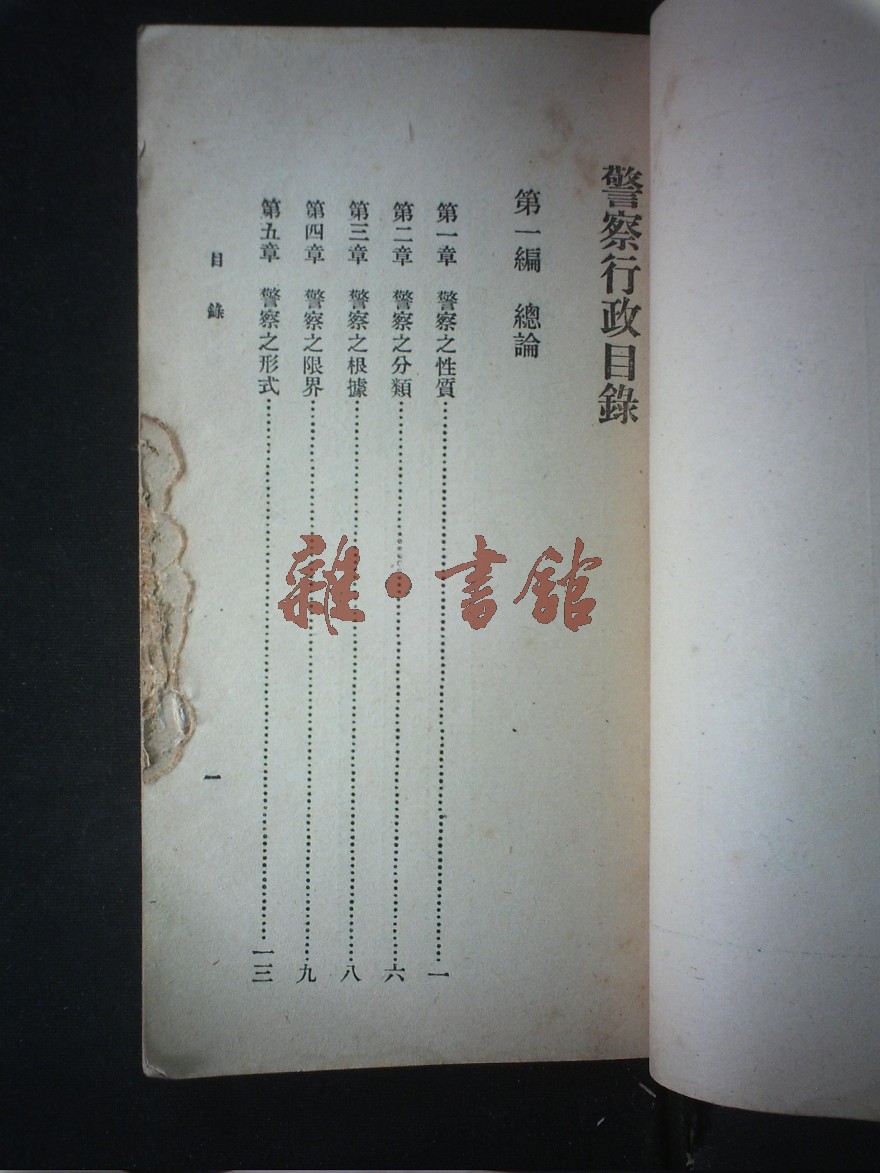 警察行政目錄
第一編 總論
第一章 警察之性質……一
第二章 警察之分類……六
第三章 警察之根據……八
第四章 警察之限界……九
第五章 警察之形式……一三
目錄 一
雜·書館